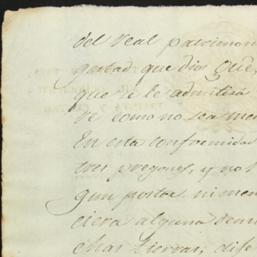 del Real patrimon
gestad que Dios Gue,
que se le admitirá
se como no sea men
En esta conformida
tres pregones, y no h
gun postor, ni men
ciera alguna
chas tierras, dise